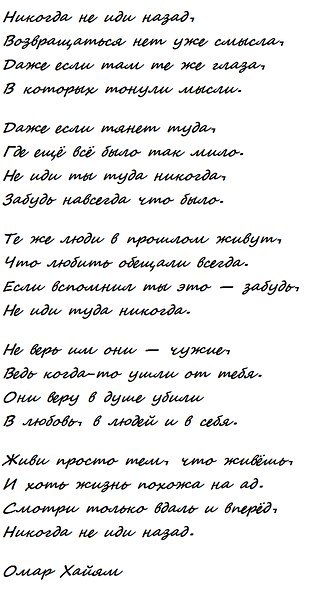 Никогда не иди назад,
Возвращаться нет уже смысла,
Даже если там те же глаза,
В которых тонули мысли.
Даже если тянет туда,
Где ещё всё было так мило.
Не иди ты туда никогда,
Забудь навсегда что было.
Те же люди в прошлом живут,
Что любить обещали всегда.
Если вспомнил ты это — забудь,
Не иди туда никогда.
Не верь им они — чужие,
Ведь когда-то ушли от тебя.
Они веру в душе убили
В любовь, в людей и в себя.
Живи просто тем, что живёшь,
И хоть жизнь похожа на ад.
Смотри только вдаль и вперёд,
Никогда не иди назад.
Омар Хайям